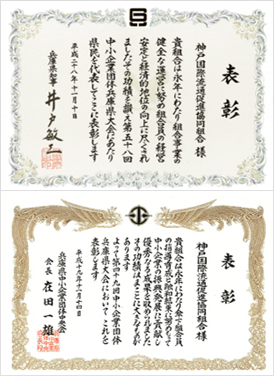 表彰
神戸国際流通促進協同組合 様
貴組合は永年にわたり組合事業の
健全な運営に努め組合員の経営
安定と経済的地位の向上に尽くされ
ましたその功績を讃え第五十八回
中小企業団体兵庫県大会にあたり
県民を代表してここに表彰します
平成二十八年十一月十日
兵庫県知事 井戸敏三
表彰
神戸国際流通促進協同組合 様
貴組合は永年にわたり
中小企業の振興発展に貢献し
優秀なる成果を収められました
その功績はまことに大なるものが
あります
よって第四十九回中小企業団体
兵庫県大会においてこれを
表彰します
平成十九年十一月十四日
兵庫県中小企業団体中央会
会長 在田一雄